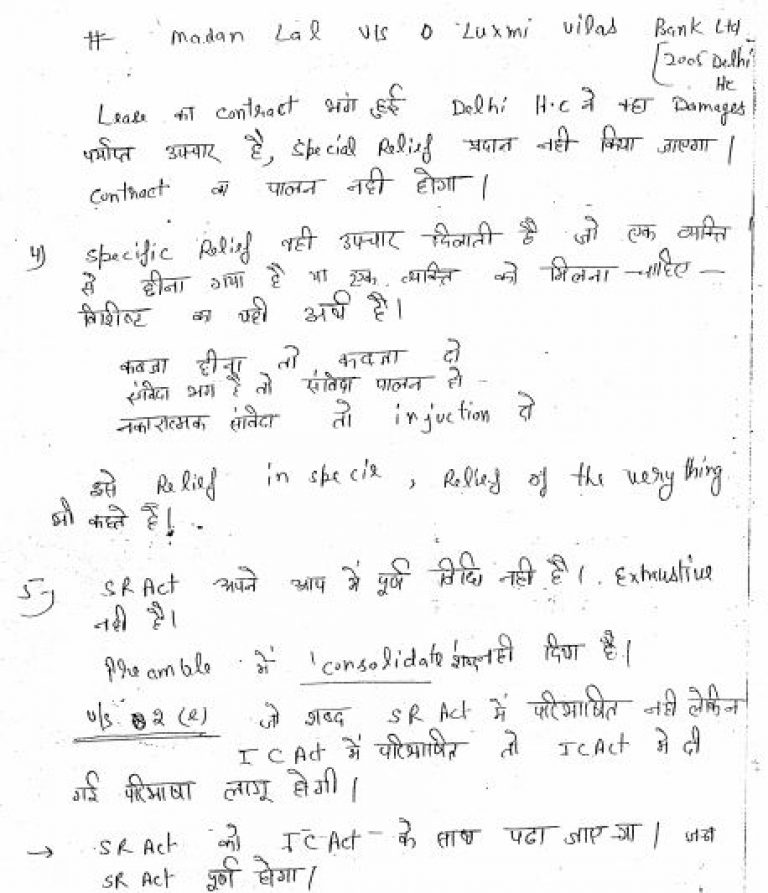 # Madan Lal v/s Luxmi vilas Bank Ltd
[2005 Delhi
HC
Lease का contract भंग हुई Delhi H.C ने कहा Damages
पर्याप्त उपचार है, special Relief प्रदान नही किया जाएगा |
contract का पालन नही होगा |
4) specific Relief वही उपचार दिलाती है जो एक व्यक्ति
से छीना गया है या एक व्यक्ति को मिलना चाहिए -
विशिष्ट का यही अर्थ है।
कब्जा छीना तो कब्जा दो
संविदा भंग है तो संविदा पालन हो -
नकारात्मक संविदा तो injuction दो
इसे Relief in specie, Relief of the very thing
भी कहते है |
5) SR Act अपने आप में पूर्ण विधि नही है । Exhaustive
नही है।
Preamble में 'consolidate' शब्द नही दिया है |
u/s 2 (e) जो शब्द SR Act में परिभाषित नही लेकिन
I C Act में परिभाषित तो IC Act मे दी
गई परिभाषा लागू होगी |
→ SR Act को IC Act के साथ पढा जाएगा |
SR Act पूर्ण होगा |